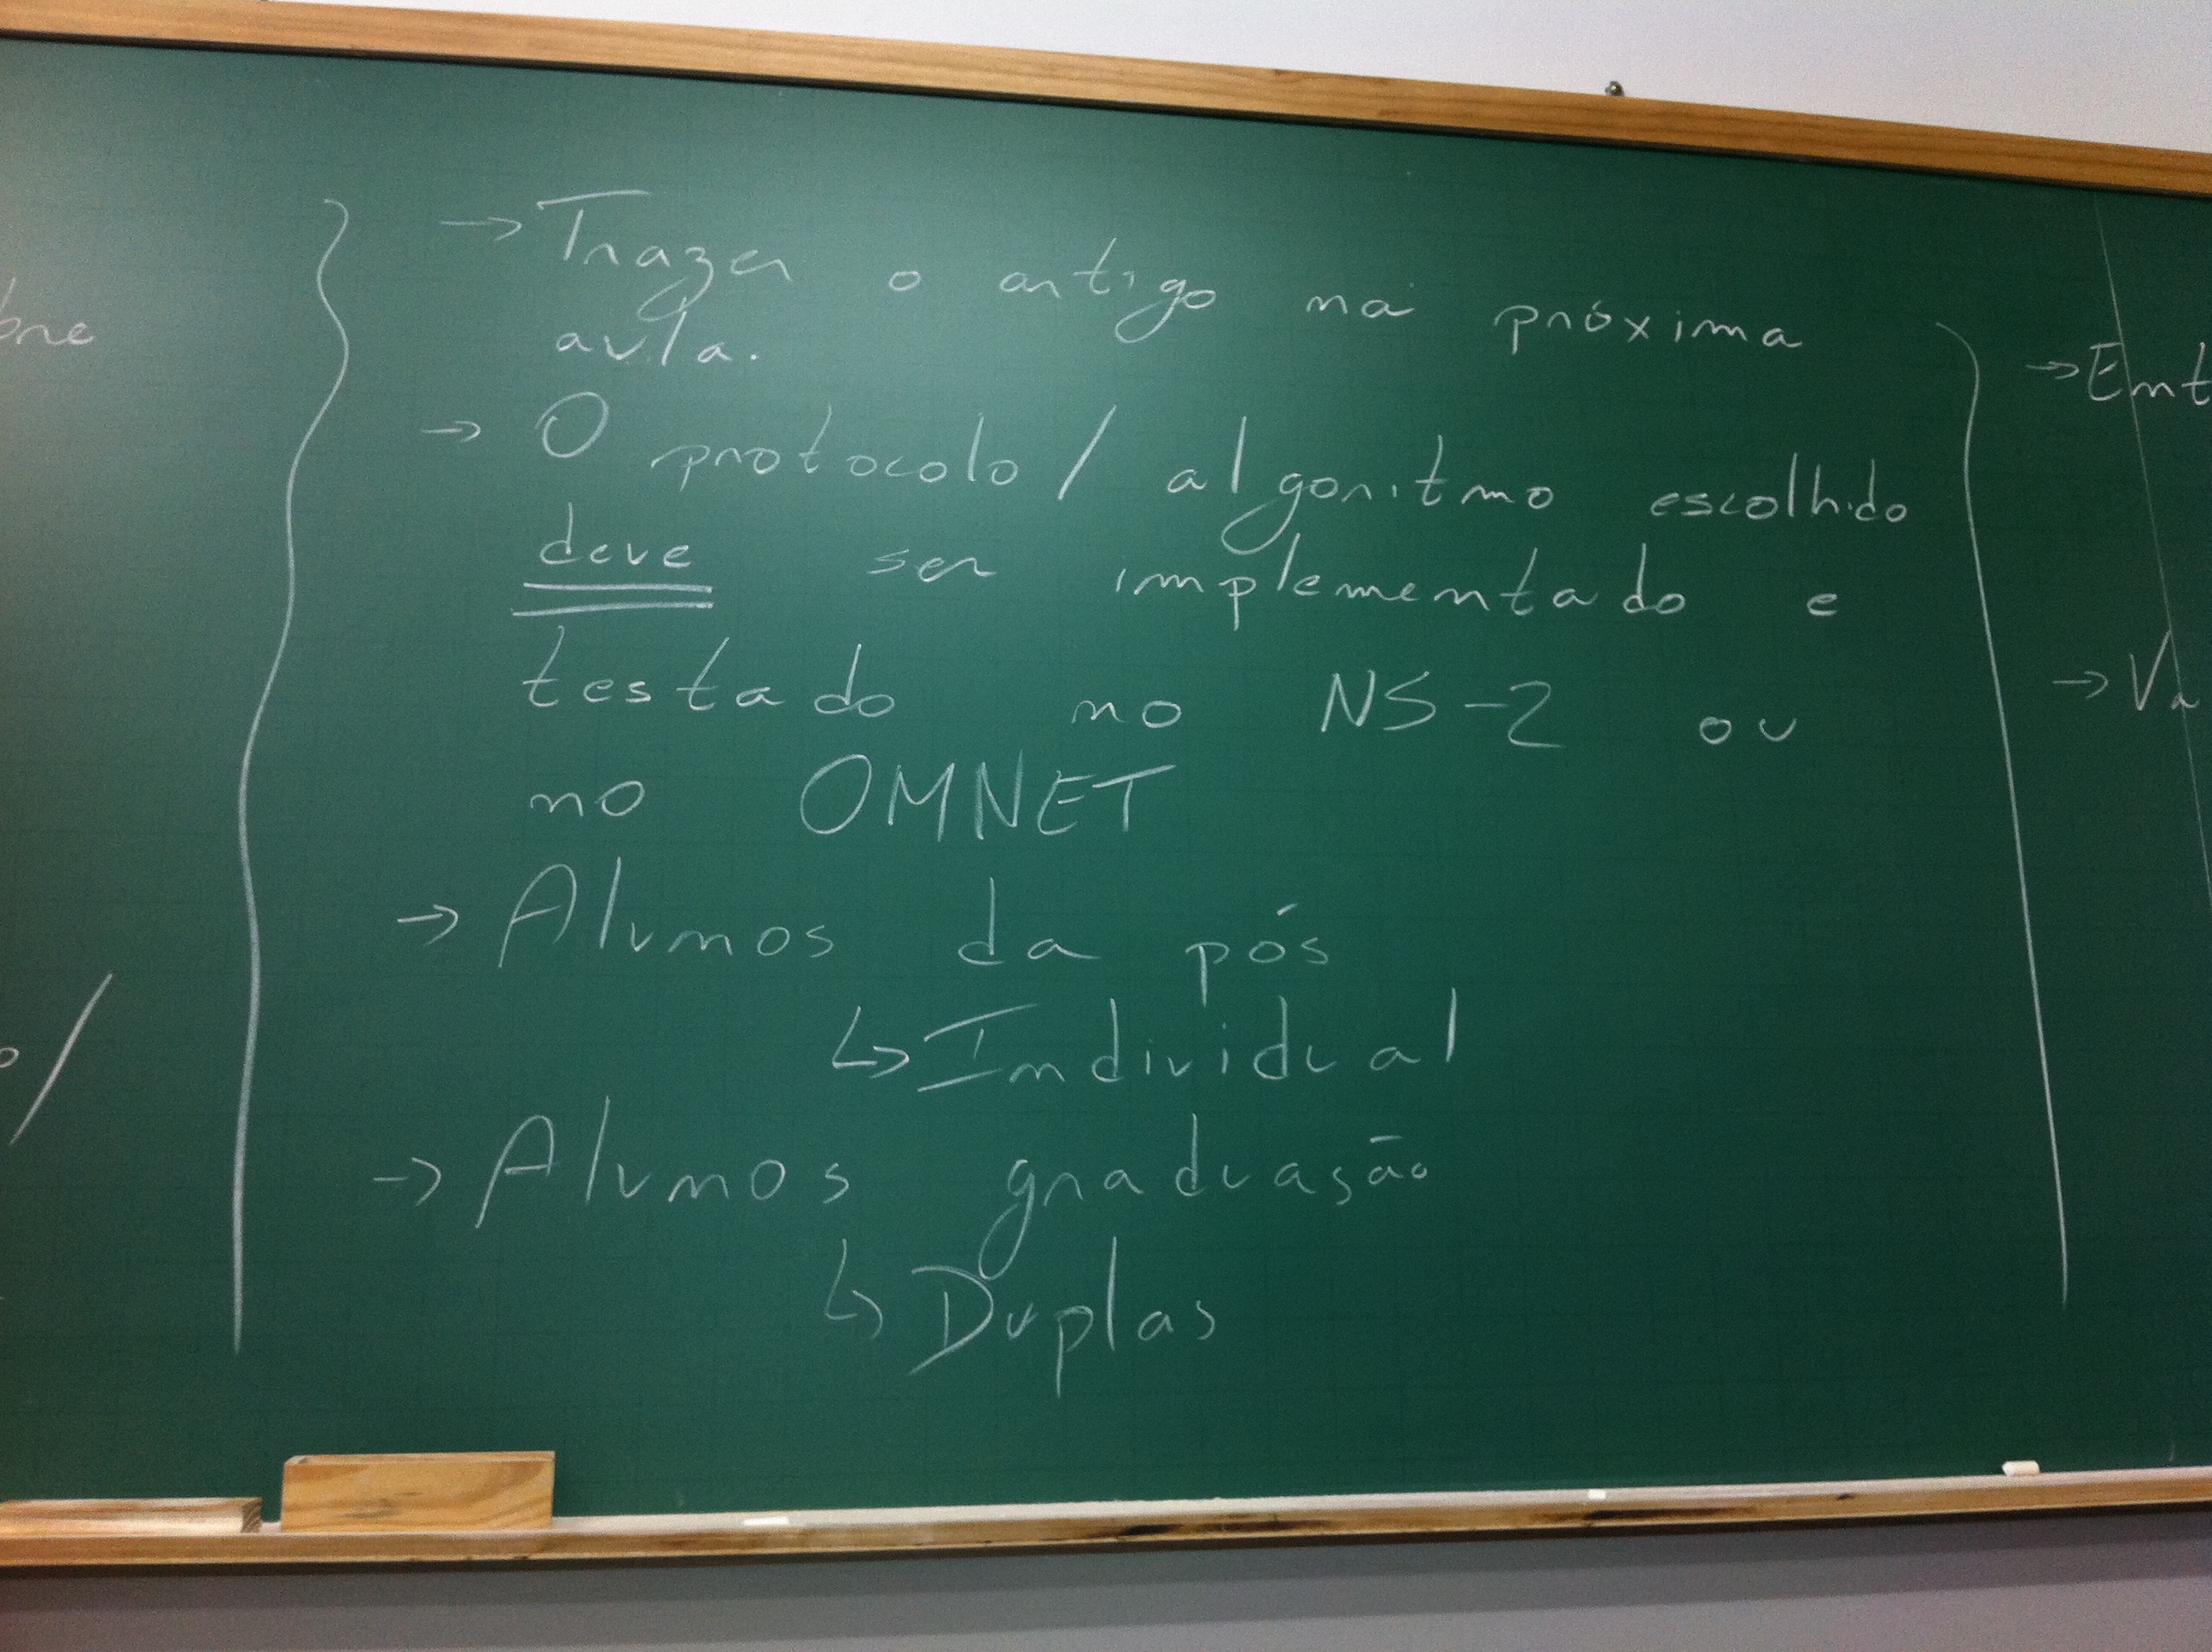 → Trazer o artigo na próxima
aula.
→ O protocolo / algoritmo escolhido
deve ser implementado e
testado no NS-2 ou
no OMNET
→ Alunos da pós
↳ Individual
→ Alunos graduação
↳ Duplas